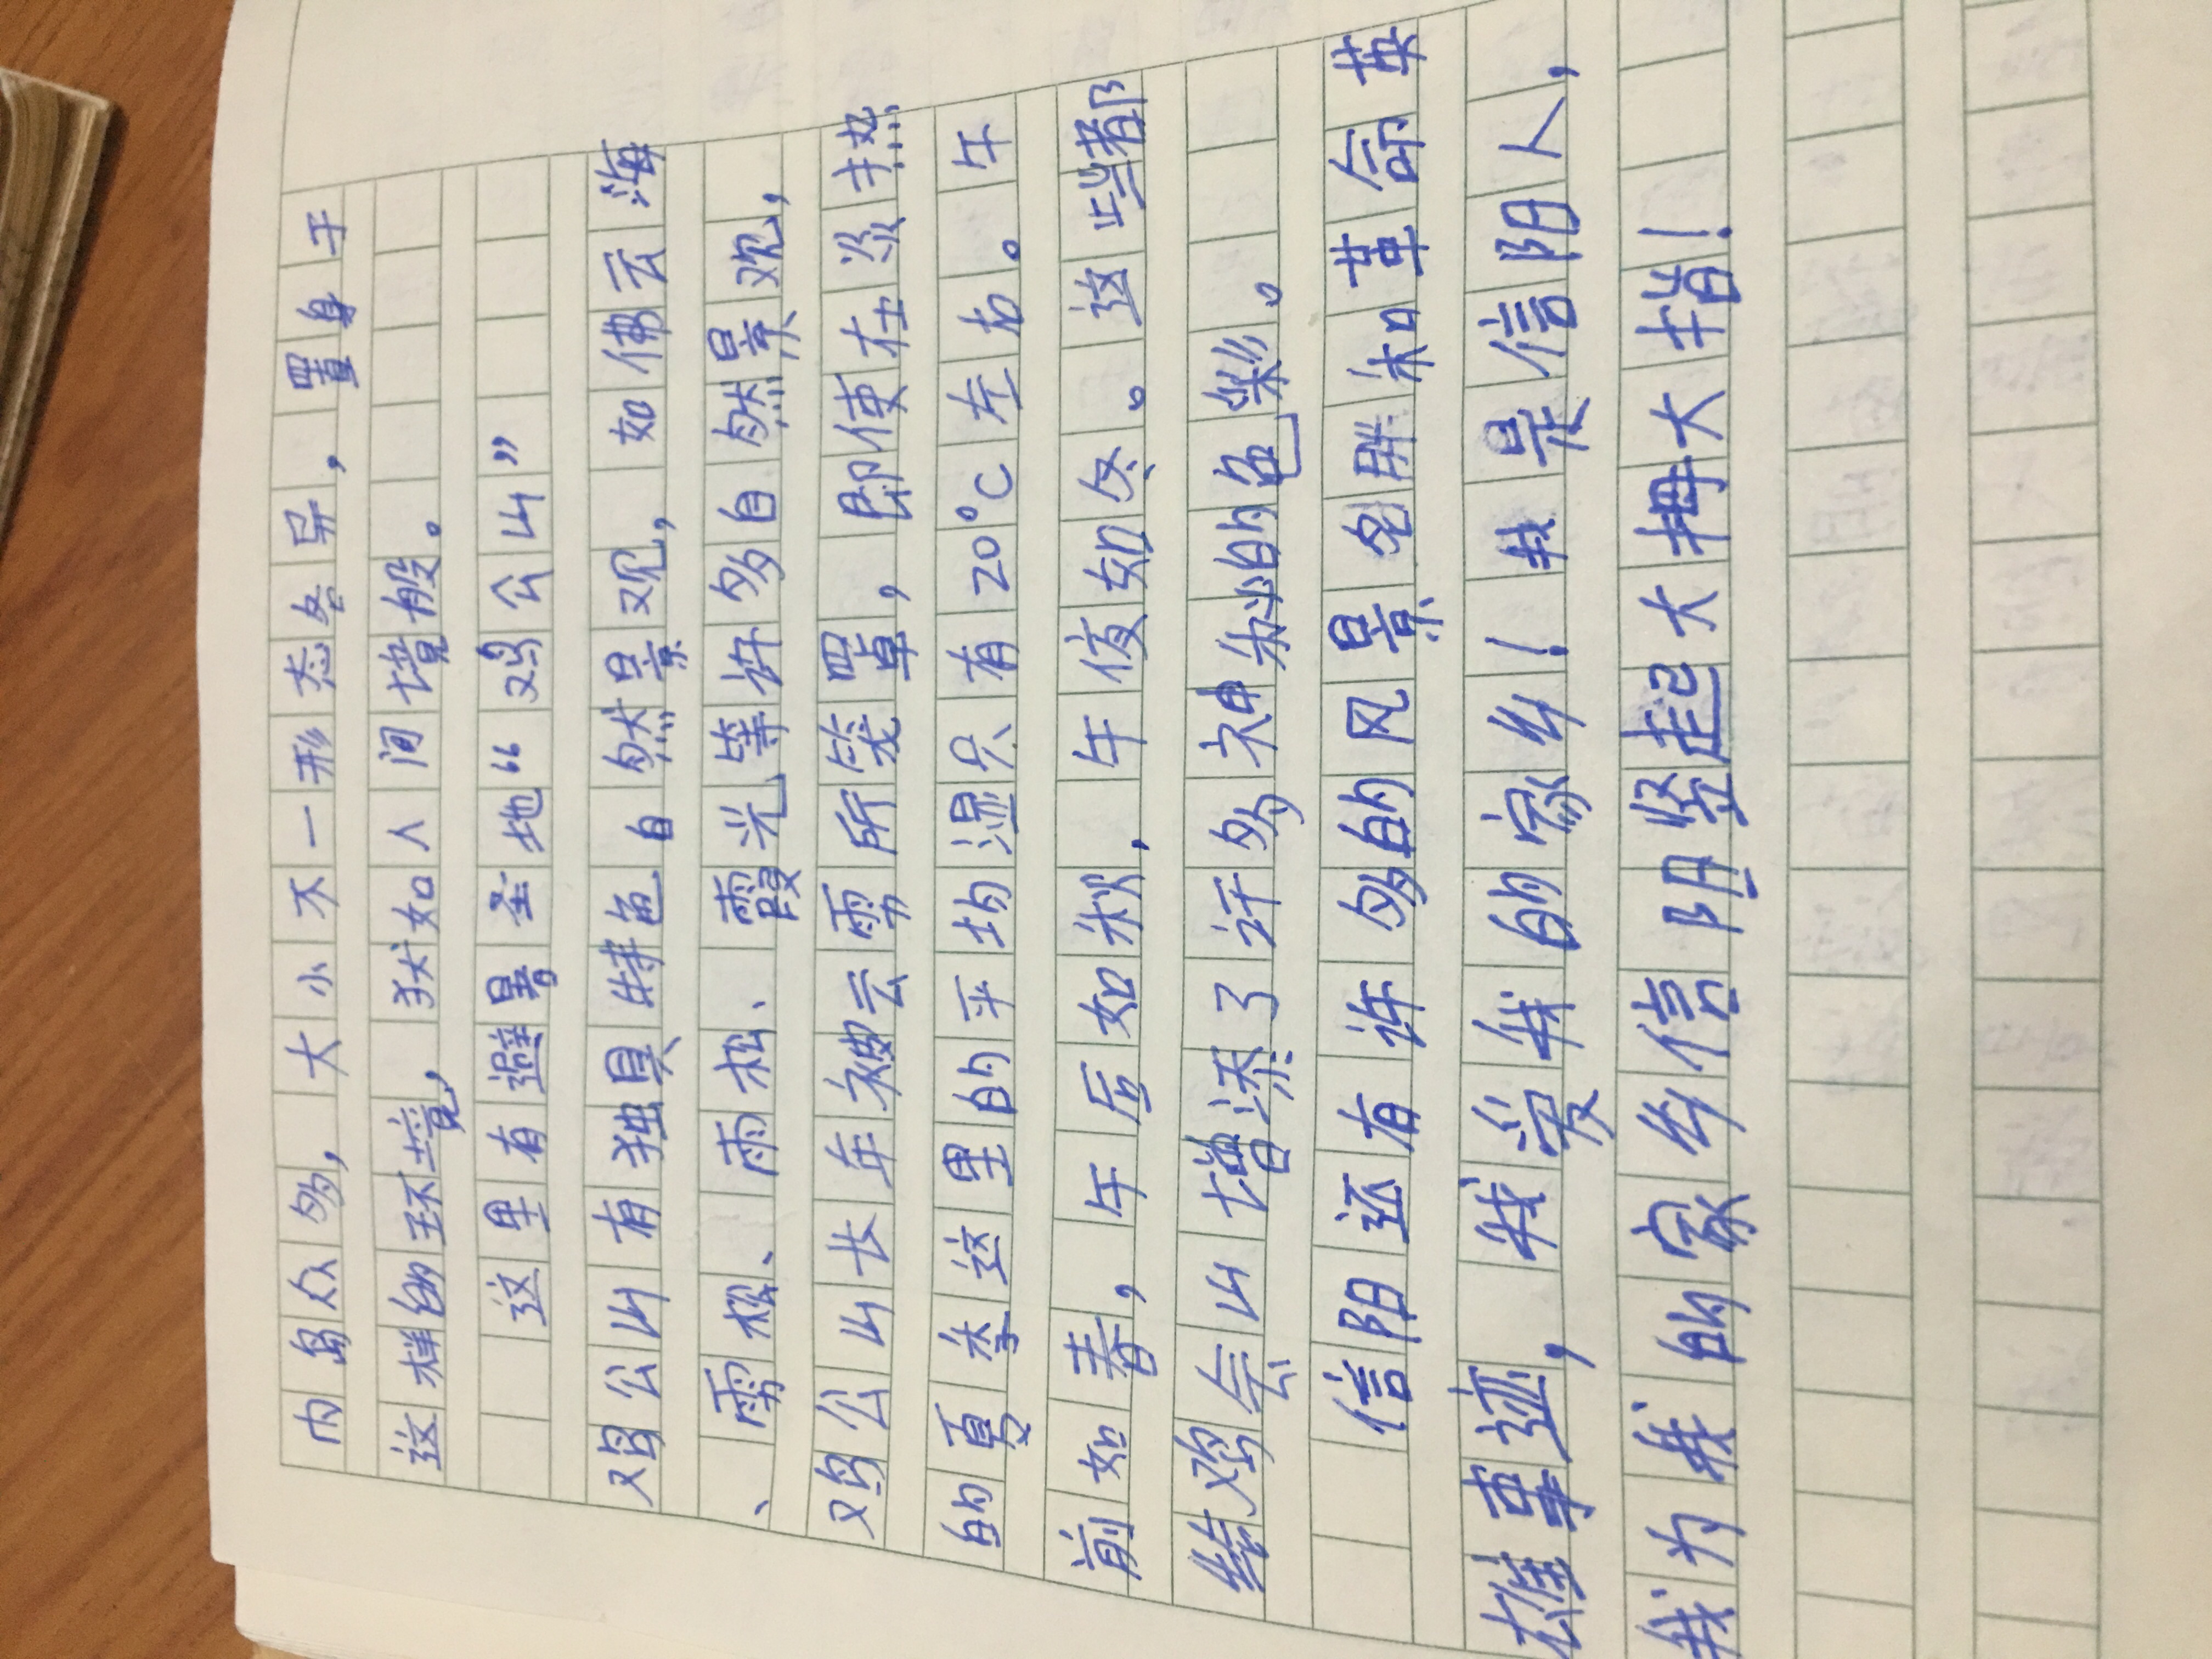 内岛众多，大小不一形态各异，置身于
这样的环境，犹如人间境般。
这里有避暑圣地“鸡公山”
鸡公山有独具特色自然景观，如佛云海
、雾松、雨松、霞光等许多自然景观，
鸡公山长年被云雾所笼罩，即使在炎热
的夏季这里的平均湿只有20°C左右。午
前如春，午后如秋，午夜如冬。这些都
给鸡公山增添了许多神秘的色彩。
信阳还有许多的风景名胜和革命英
雄事迹，我爱我的家乡！我是信阳人，
我为我的家乡信阳竖起大拇大指！